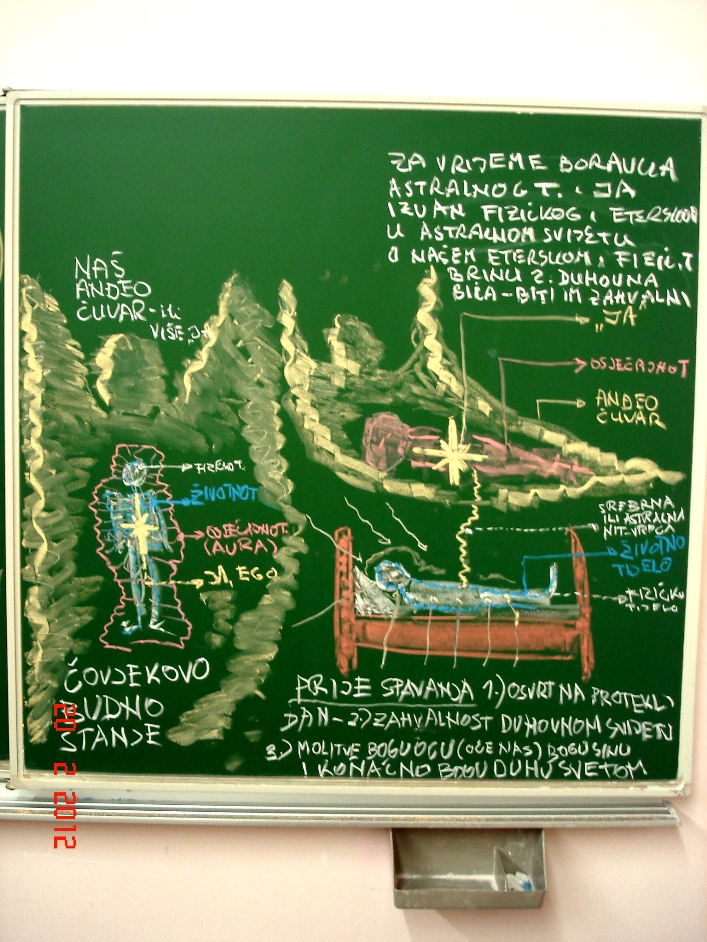 ZA VRIJEME BORAVKA
ASTRALNOG T. I JA
IZVAN FIZIČKOG I ETERSKOG
U ASTRALNOM SVIJETU
O NAŠEM ETERSKOM I FIZIČ. T
BRINU 2. DUHOVNA
BIĆA - BITI IM ZAHVALNI
NAŠ
ANĐEO
ČUVAR - ili
VIŠE JA
"JA"
OSJEĆAJNOT
ANĐEO
ČUVAR
FIZIČNOT.
ŽIVOTNOT
OSJEĆAJNOT.
(AURA)
JA, EGO
SREBRNA
ILI ASTRALNA
NIT-VRPCA
ŽIVOTNO
TIJELO
FIZIČKO
TIJELO
ČOVJEKOVO
BUDNO
STANJE
PRIJE SPAVANJA 1.) OSVRT NA PROTEKLI
DAN - 2.) ZAHVALNOST DUHOVNOM SVIJETU
3.) MOLITVE BOGU OCU (OČE NAŠ) BOGU SINU
I KONAČNO BOGU DUHU SVETOM
20 2 2012